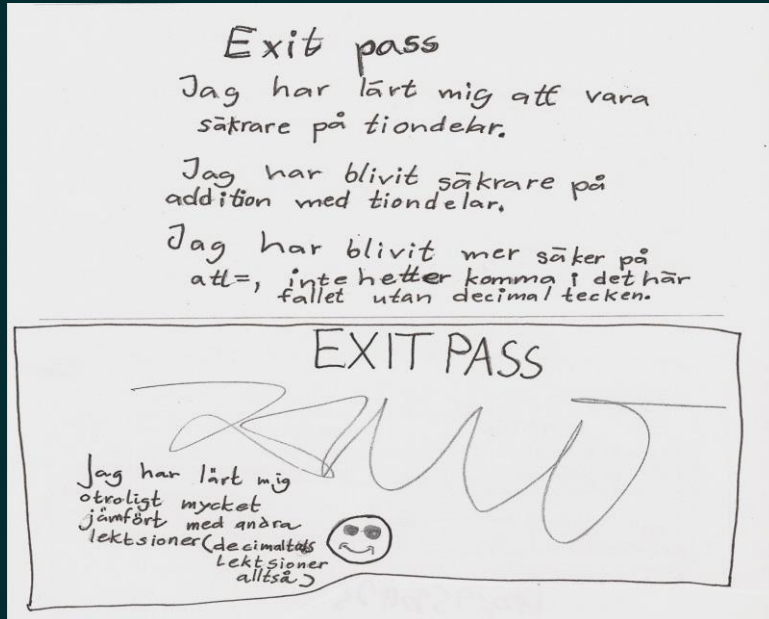 Exit pass
Jag har lärt mig att vara
säkrare på tiondelar.
Jag har blivit säkrare på
addition med tiondelar.
Jag har blivit mer säker på
att =, inte hetter komma i det här
fallet utan decimal tecken.
EXIT PASS
Jag har lärt mig
otroligt mycket
jämfört med andra
lektsioner (decimaltals
lektsioner
alltså)